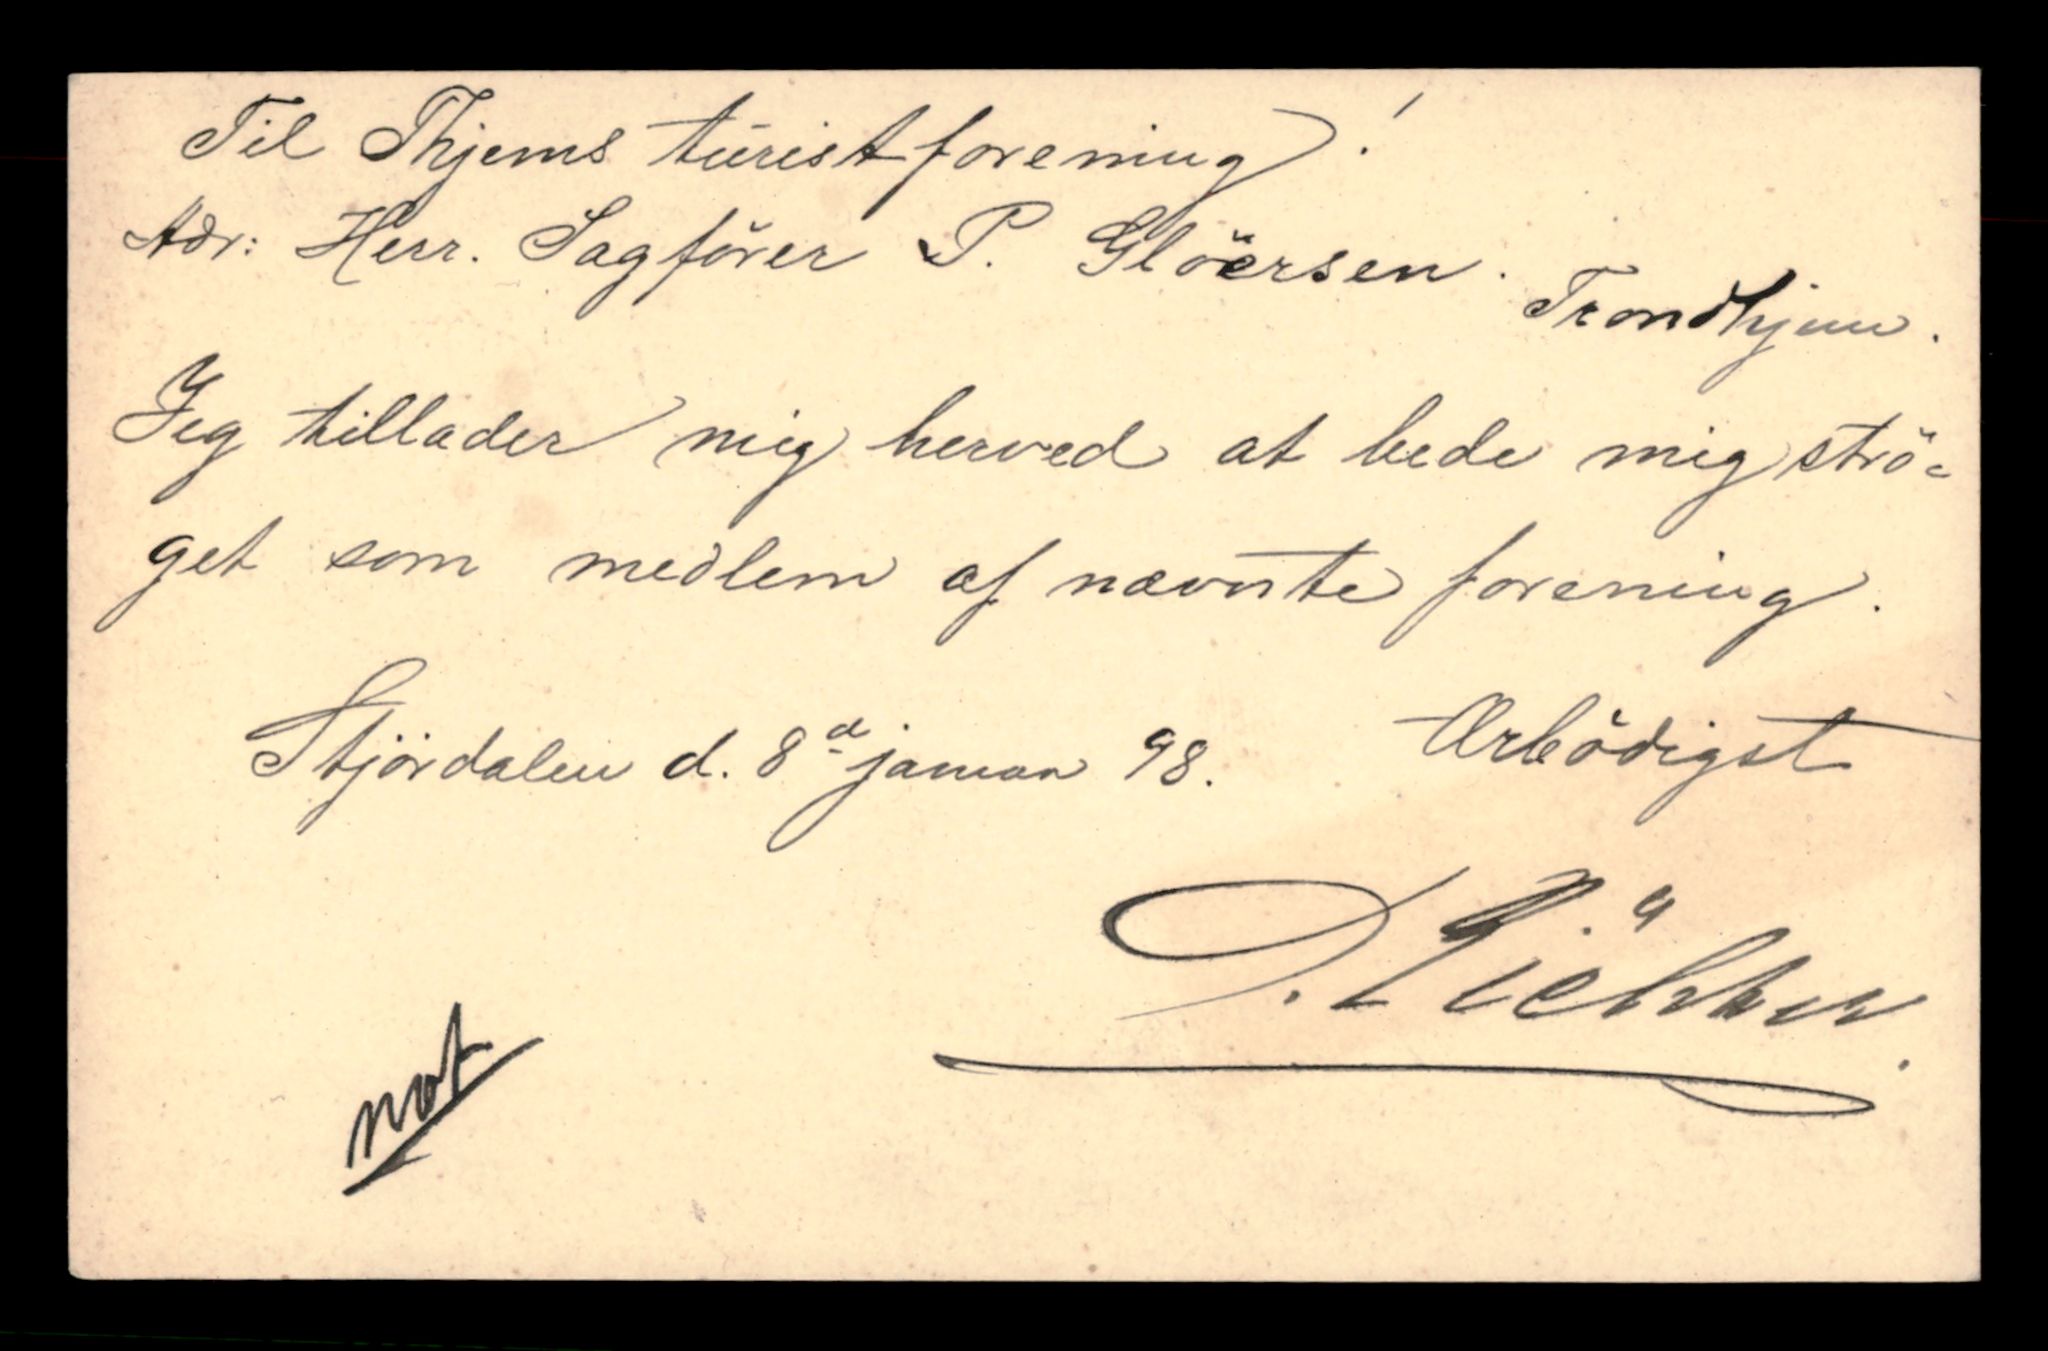 Til Thjems turistforening!
Adr: Herr. Sagförer P. Glöersen.
Trondhjem.
Jeg tillader mig herved at bede mig strö-
get som medlem af nævnte forening.
Stjördalen d. 8d januar 98. Ærbödigst
not